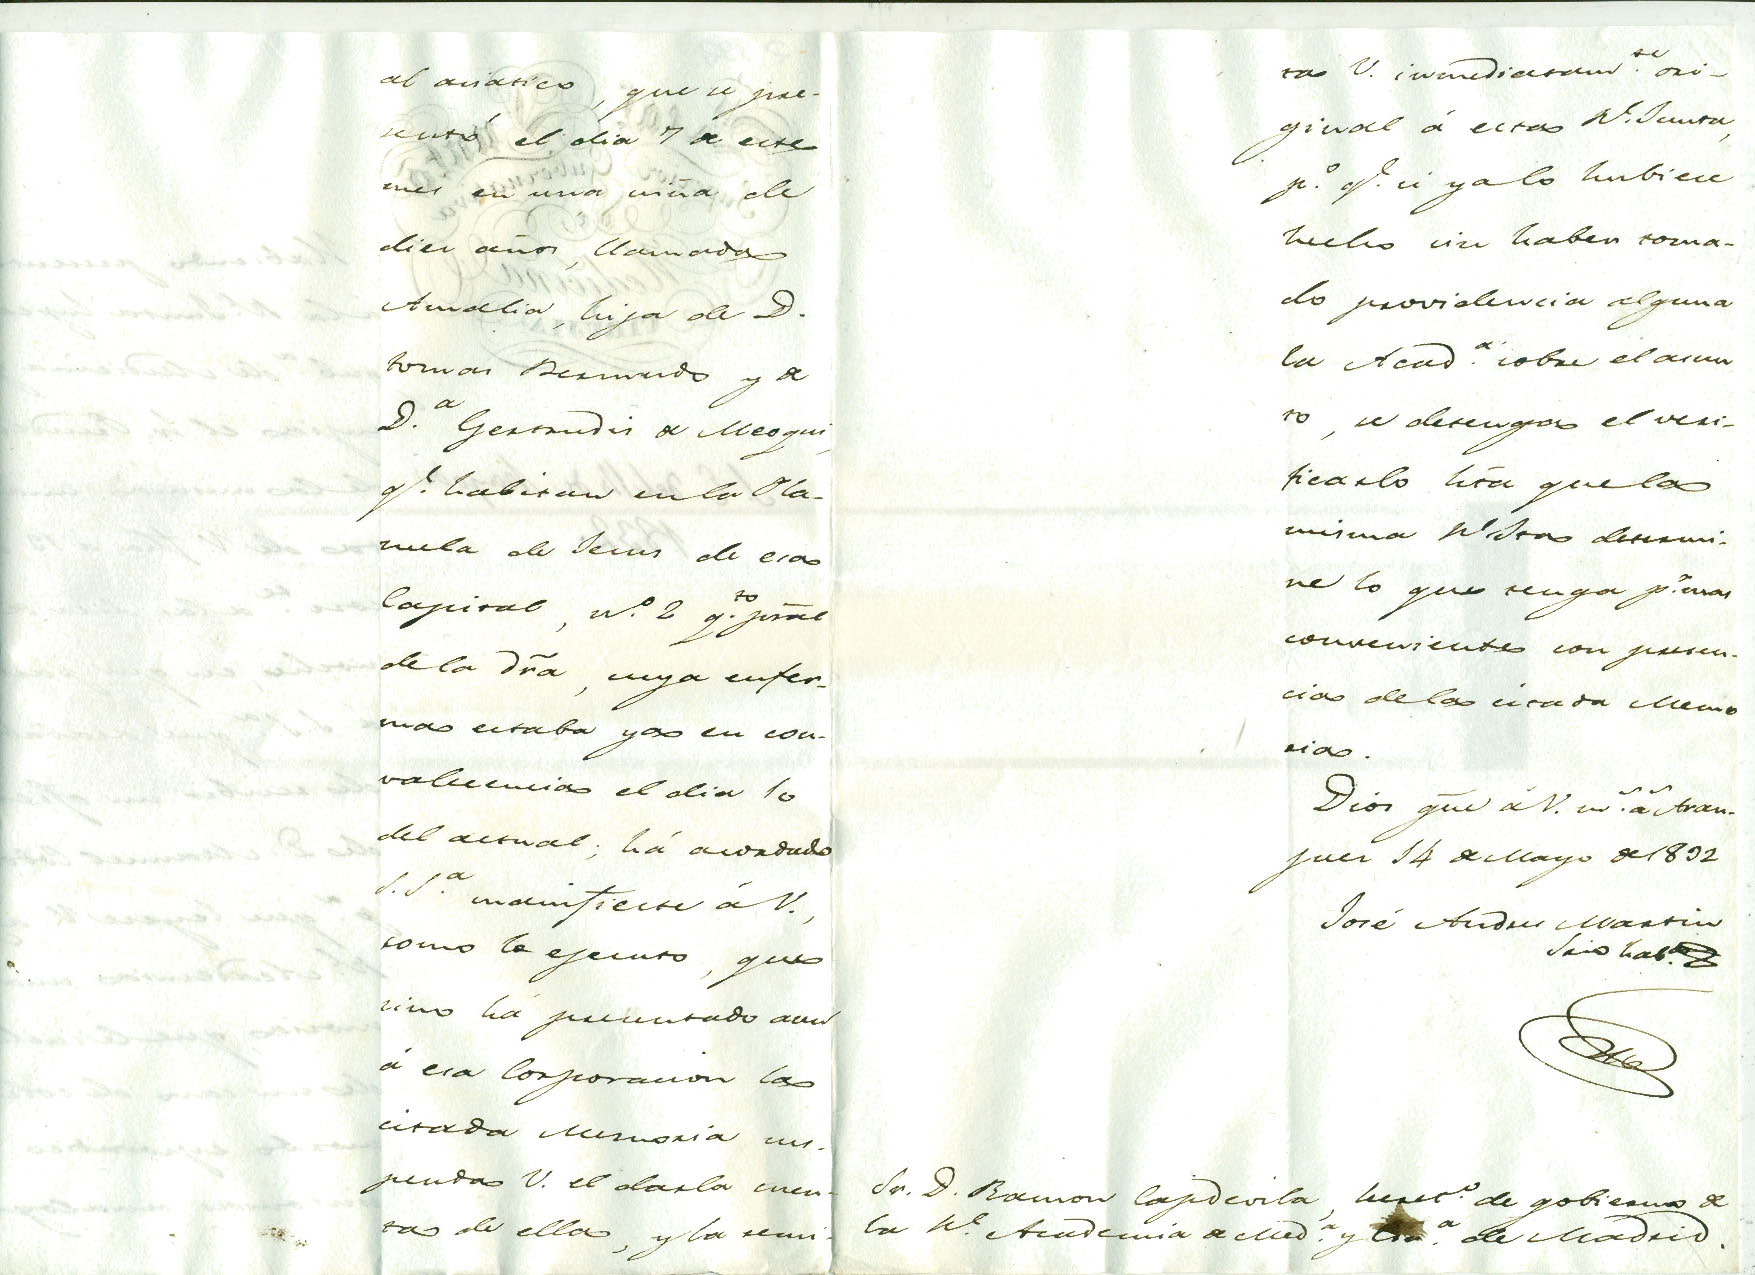 al asiatico, que se pre-
sentó el dia 7 de este
mes en una niña de
diez años, llamada
Amalia, hija de D.
tomas Bermudo y de
D.ª Gertrudis de Meoqui,
q.e habitan en la Pla-
zuela de Jesus de esa
Capital, n.º 2 q.to pral
de la dra, cuya enfer-
ma estaba ya en con-
valecencia el dia 10
del actual; há acordado
S. S.ª manifieste á V.,
como lo ejecuto, que
sino há presentado aun
á esa Corporacion la
citada Memoria sus-
penda V. el darla cuen-
ta de ella, y la remi-
ta V. inmediatam.te ori-
ginal á esta R.l Junta,
p.º q.e si ya lo hubiese
hecho sin haber toma-
do providencia alguna
la Acad.ª sobre el asun
to, se detenga el veri-
ficarlo hta que la
misma R.l Jta determi-
ne lo que tenga p.r mas
conveniente con presen-
cia de la citada Memo
ria.
Dios gue á V. m.s a.s Aran-
juez 14 de Mayo de 1832
José Andres Martin
Srio hab.do
Sr. D. Ramon Capdevila, Secret.º de gobierno de
la R.l Academia de Med.ª y Cir.ª de Madrid.